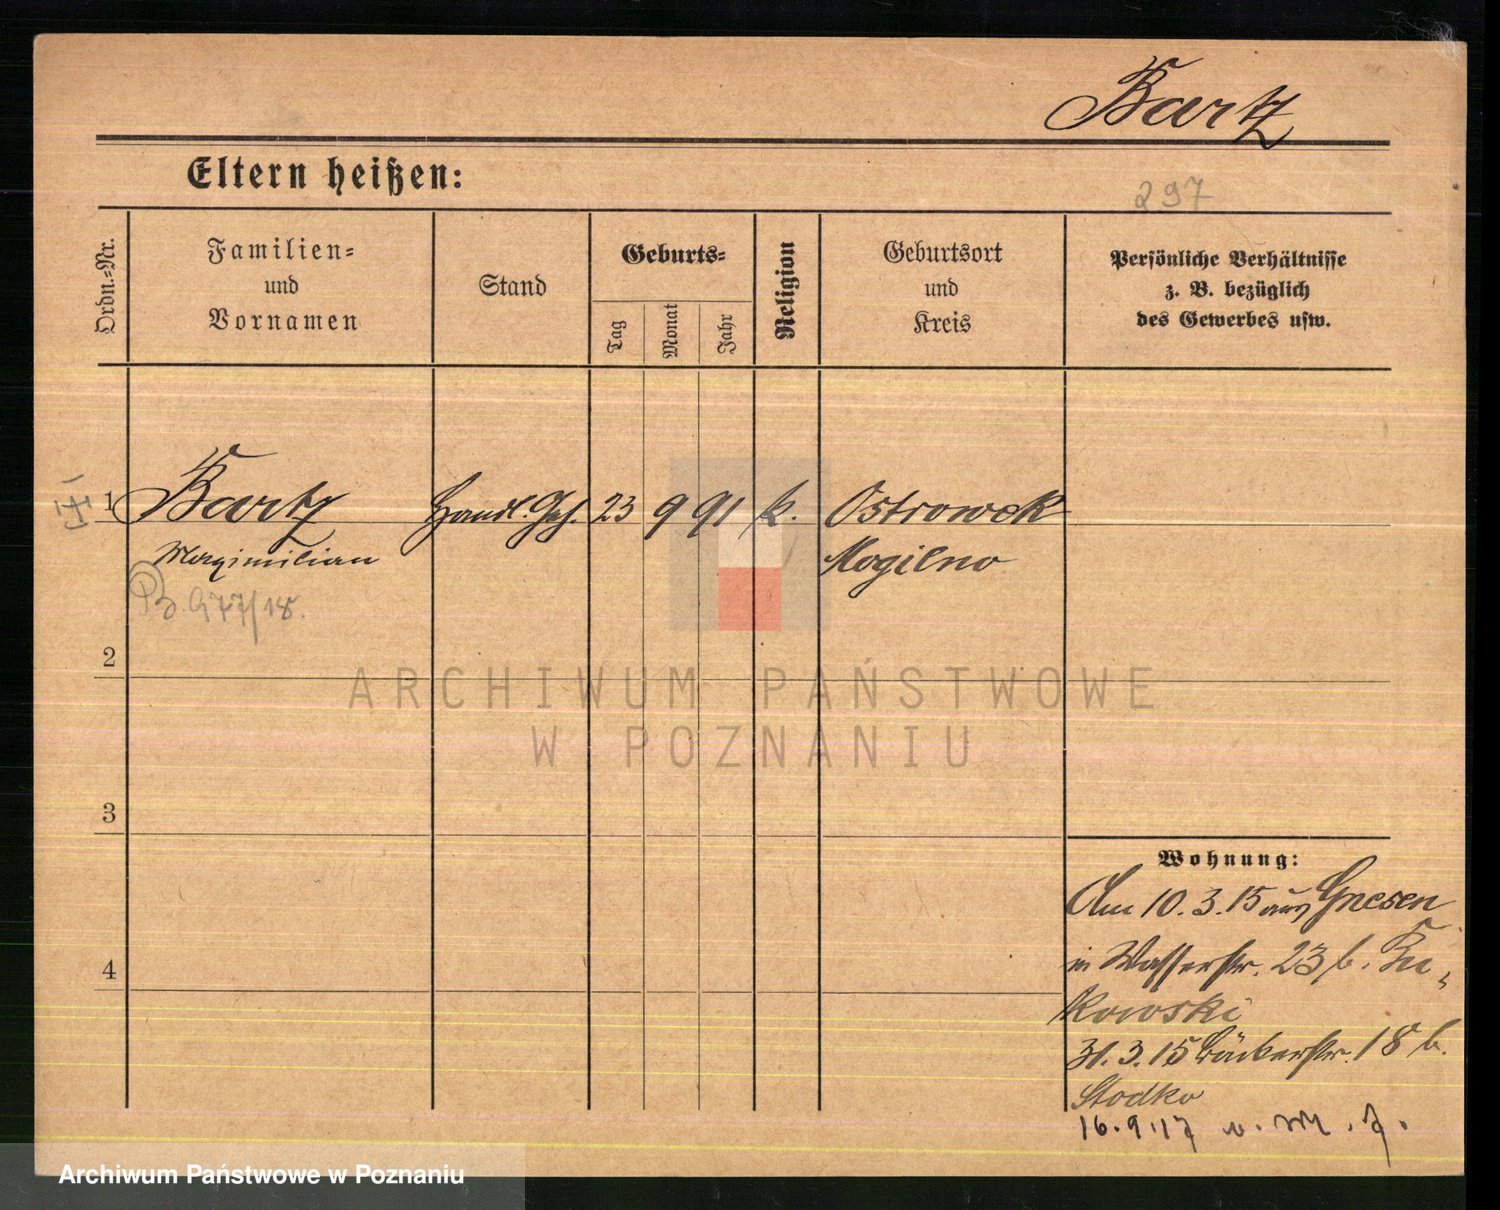 Bartz
Eltern heißen:
297
Ordn.=Nr.
Familien=
und
Vornamen
Stand
Geburts=
Tag
Monat
Jahr
Religion
Geburtsort
und
Kreis
Persönliche Verhältnisse
z. B. bezüglich
des Gewerbes usw.
1 Bartz Handl. Geh. 23 9 91 k. Ostrowek
Maximilian Mogilno
977/18.
2
3
4
Wohnung:
Am 10.3.15 aus Gnesen
in Wasserstr. 23 b.
kowski
31.3.15 Bäckerstr. 18 b.
Stodko
16.9.17
ARCHIWUM PAŃSTWOWE
W POZNANIU
Archiwum Państwowe w Poznaniu